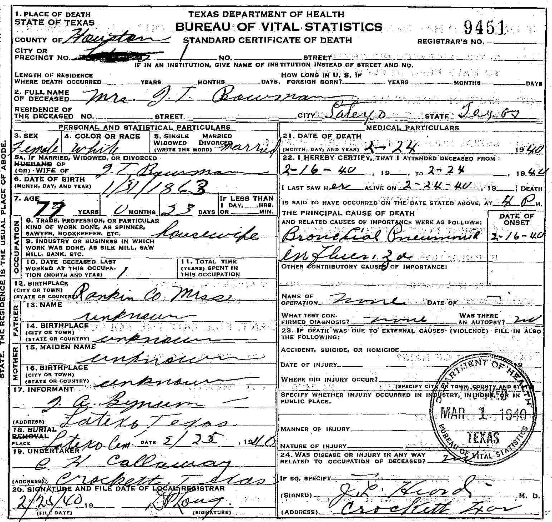 TEXAS DEPARTMENT OF HEALTH
BUREAU OF VITAL STATISTICS
STANDARD CERTIFICATE OF DEATH
9451
REGISTRAR'S NO.
1. PLACE OF DEATH
STATE OF TEXAS
COUNTY OF Houston
CITY OR
PRECINCT NO.
NO. STREET
IF IN AN INSTITUTION, GIVE NAME OF INSTITUTION INSTEAD OF STREET AND NO.
LENGTH OF RESIDENCE
WHERE DEATH OCCURRED YEARS MONTHS DAYS
HOW LONG IN U.S. IF
FOREIGN BORN? YEARS MONTHS DAYS
2. FULL NAME
OF DECEASED Mrs. J.T. Bowman
RESIDENCE OF
THE DECEASED NO. STREET CITY Texas
PERSONAL AND STATISTICAL PARTICULARS
3. SEX 4. COLOR OR RACE 5. SINGLE MARRIED WIDOWED DIVORCED (WRITE THE WORD)
Female White Married
5A. IF MARRIED, WIDOWED, OR DIVORCED
HUSBAND OF
(OR) WIFE OF
6. DATE OF BIRTH
(MONTH, DAY, AND YEAR) 1/31/1863
7. AGE
77 YEARS 0 MONTHS 23 DAYS
IF LESS THAN
1 DAY, HRS.
OR MIN.
OCCUPATION
8. TRADE, PROFESSION, OR PARTICULAR
KIND OF WORK DONE, AS SPINNER,
SAWYER, BOOKKEEPER, ETC. housewife
9. INDUSTRY OR BUSINESS IN WHICH
WORK WAS DONE, AS SILK MILL, SAW
MILL, BANK, ETC.
10. DATE DECEASED LAST
WORKED AT THIS OCCUPATION
(MONTH AND YEAR)
11. TOTAL TIME
(YEARS) SPENT IN
THIS OCCUPATION
12. BIRTHPLACE (CITY OR TOWN)
(STATE OR COUNTRY) Rankin Co Miss
FATHER
13. NAME unknown
14. BIRTHPLACE (CITY OR TOWN)
(STATE OR COUNTRY) unknown
MOTHER
15. MAIDEN NAME unknown
16. BIRTHPLACE
(CITY OR TOWN)
(STATE OR COUNTRY) unknown
17. INFORMANT
(ADDRESS) Texas
18. BURIAL
REMOVAL
PLACE DATE 2/25 1940
19. UNDERTAKER
Callaway
(ADDRESS) Crockett Texas
20. SIGNATURE AND FILE DATE OF LOCAL REGISTRAR
2/25/40
(FILE DATE) (SIGNATURE)
MEDICAL PARTICULARS
21. DATE OF DEATH
(MONTH, DAY, AND YEAR) 2-24 1940
22. I HEREBY CERTIFY, THAT I ATTENDED DECEASED FROM
2-16-40 TO 2-24 1940
I LAST SAW her ALIVE ON 2-24-40 DEATH
IS SAID TO HAVE OCCURRED ON THE DATE STATED ABOVE, AT
THE PRINCIPAL CAUSE OF DEATH
AND RELATED CAUSES OF IMPORTANCE WERE AS FOLLOWS:
DATE OF
ONSET
Bronchial Pneumonia 2-16-40
Influenza
OTHER CONTRIBUTORY CAUSES OF IMPORTANCE:
NAME OF
OPERATION none DATE OF
WHAT TEST CONFIRMED DIAGNOSIS? none
WAS THERE
AN AUTOPSY? no
23. IF DEATH WAS DUE TO EXTERNAL CAUSES (VIOLENCE) FILL IN ALSO
THE FOLLOWING:
ACCIDENT, SUICIDE, OR HOMICIDE
DATE OF INJURY
WHERE DID INJURY OCCUR?
(SPECIFY CITY OR TOWN, COUNTY AND STATE)
SPECIFY WHETHER INJURY OCCURRED IN INDUSTRY, IN HOME, OR IN
PUBLIC PLACE.
MANNER OF
INJURY
NATURE OF INJURY
24. WAS DISEASE OR INJURY IN ANY WAY
RELATED TO OCCUPATION OF DECEASED?
IF SO, SPECIFY
(SIGNED) M. D.
(ADDRESS) Crockett
DEPARTMENT OF HEALTH
MAR 1 1940
TEXAS
BUREAU OF VITAL STATISTICS
STATE. THE RESIDENCE IS THE USUAL PLACE OF ABODE.